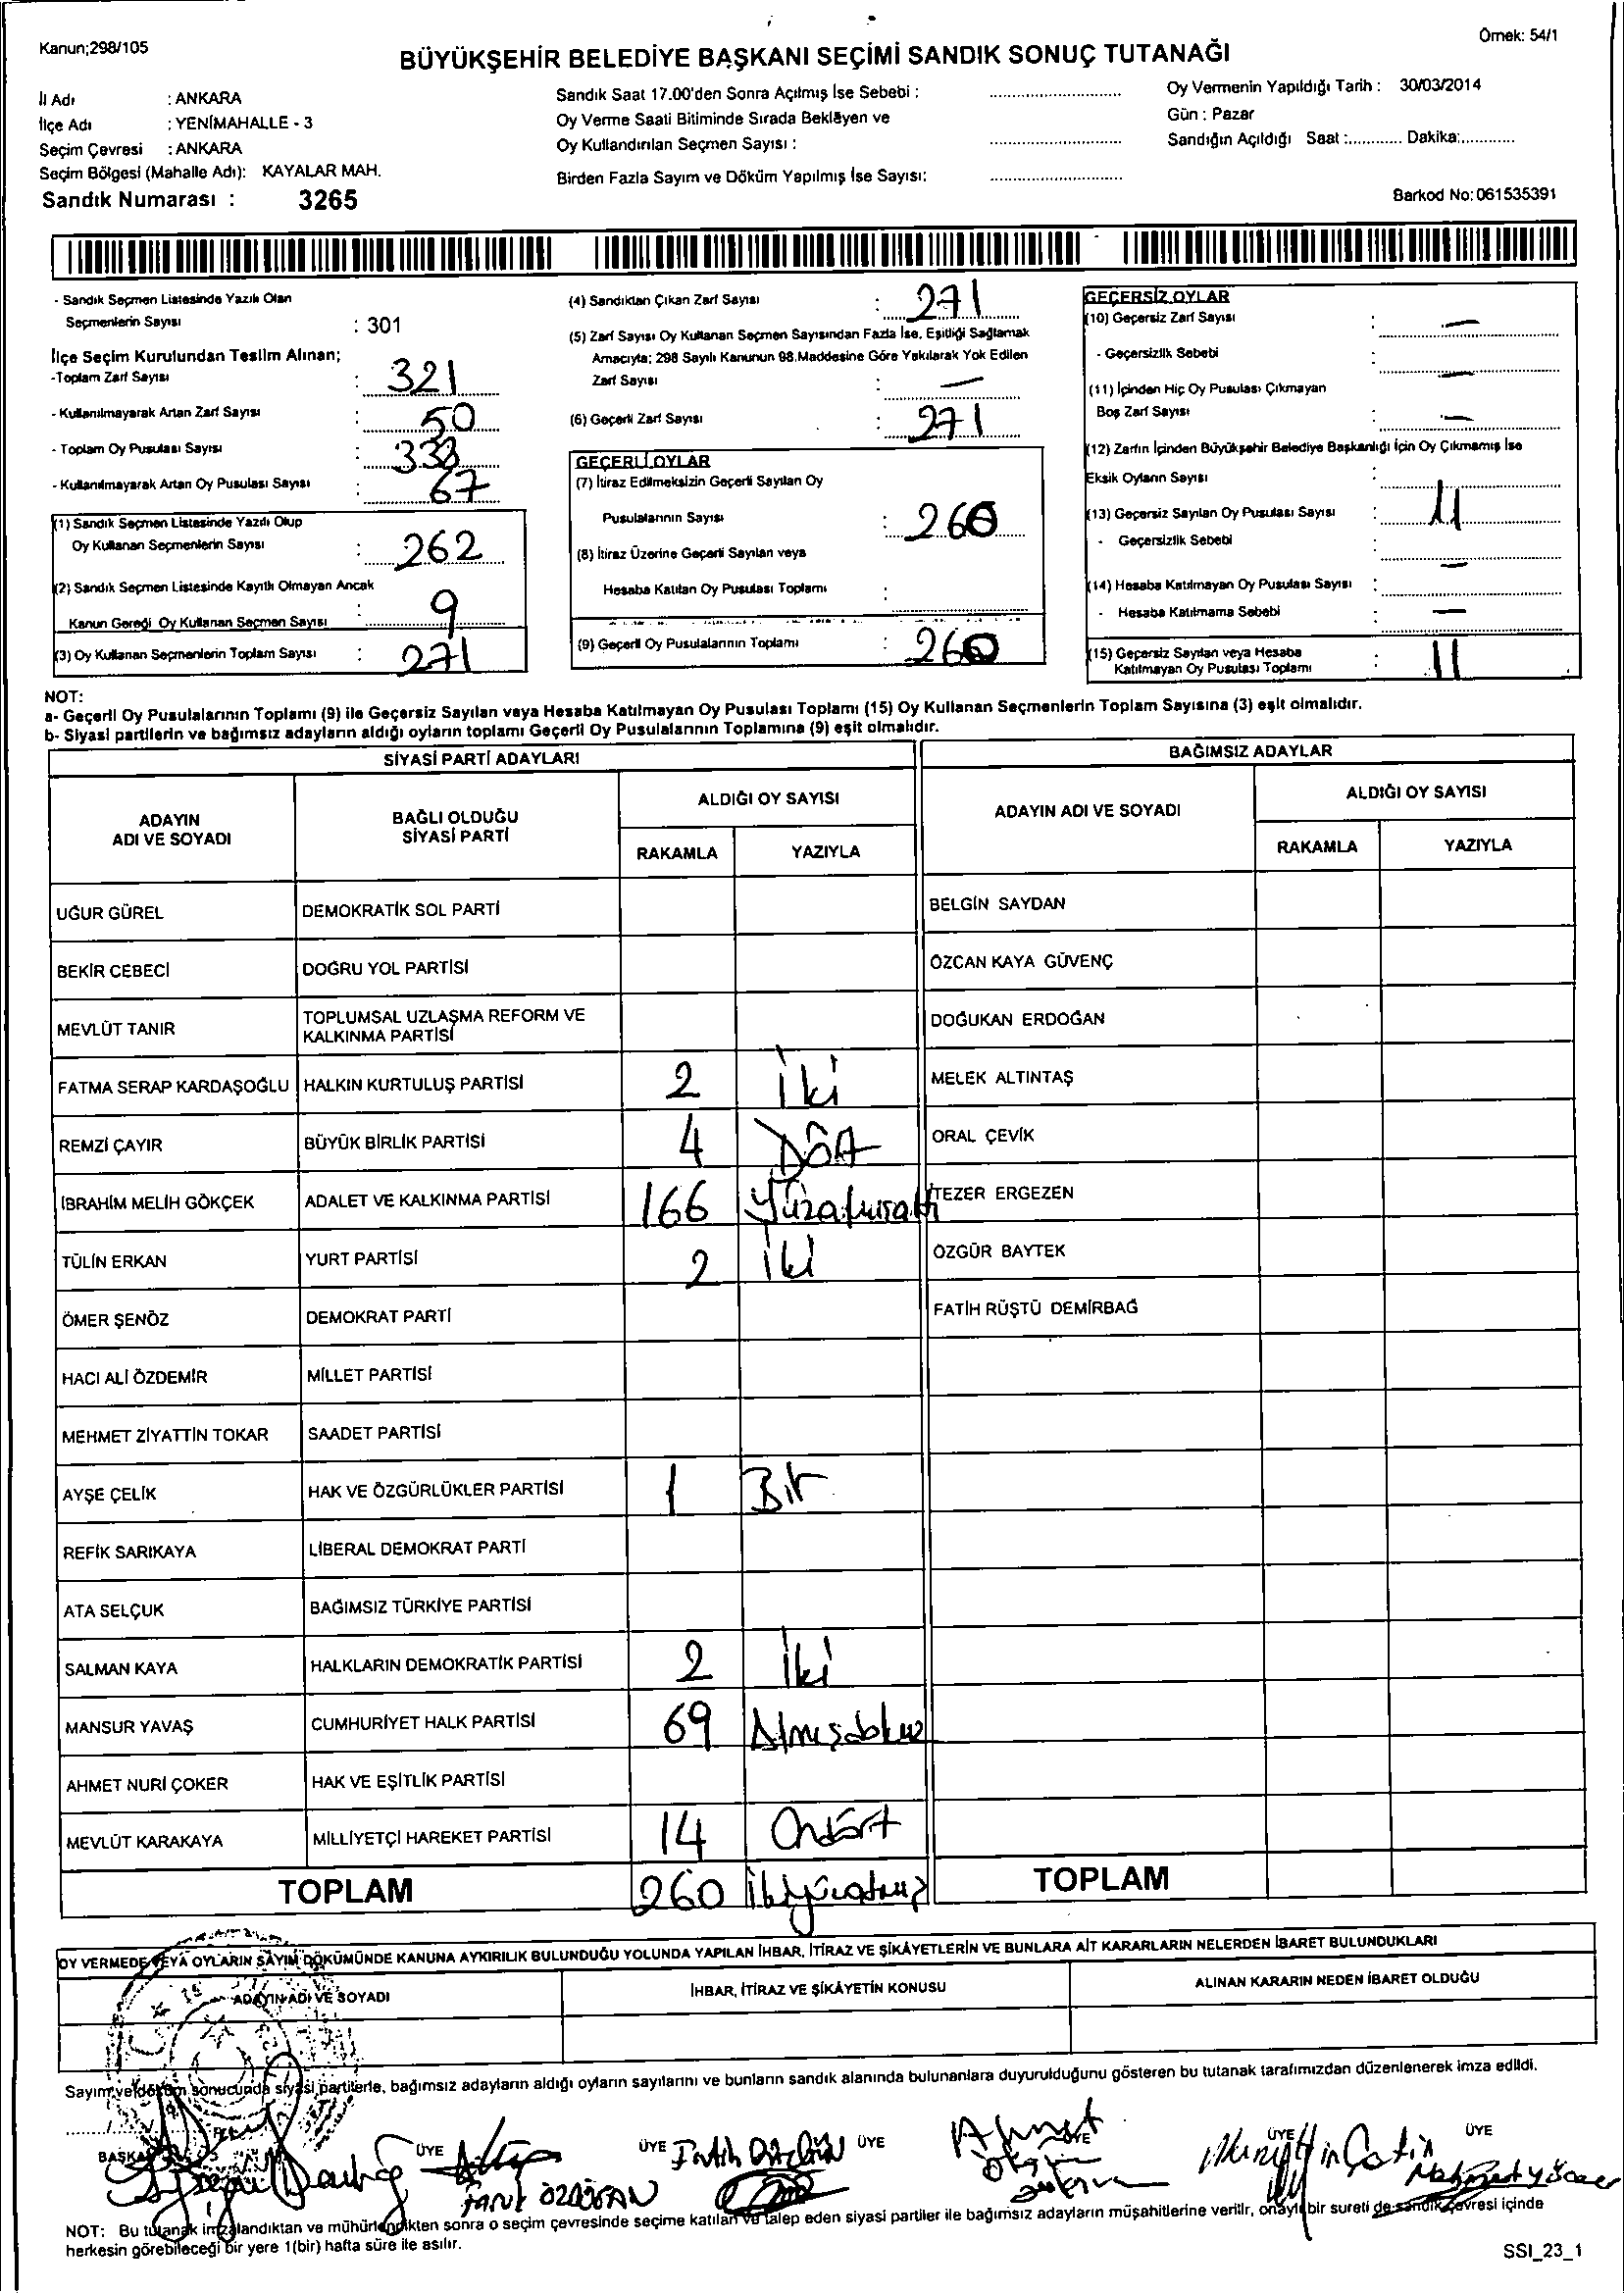 Kanun;298/105
Örnek: 54/1
BÜYÜKŞEHİR BELEDİYE BAŞKANI SEÇİMİ SANDIK SONUÇ TUTANAĞI
İl Adı : ANKARA
İlçe Adı : YENİMAHALLE - 3
Seçim Çevresi : ANKARA
Seçim Bölgesi (Mahalle Adı): KAYALAR MAH.
Sandık Numarası : 3265
Sandık Saat 17.00'den Sonra Açılmış İse Sebebi : ..........
Oy Verme Saati Bitiminde Sırada Bekleyen ve
Oy Kullandırılan Seçmen Sayısı : ..........
Birden Fazla Sayım ve Döküm Yapılmış İse Sayısı: ..........
Oy Vermenin Yapıldığı Tarih : 30/03/2014
Gün : Pazar
Sandığın Açıldığı Saat :............. Dakika:.............
Barkod No: 061535391
- Sandık Seçmen Listesinde Yazılı Olan
Seçmenlerin Sayısı : 301
İlçe Seçim Kurulundan Teslim Alınan;
-Toplam Zarf Sayısı : 321
- Kullanılmayarak Artan Zarf Sayısı : 50
- Toplam Oy Pusulası Sayısı : 338
- Kullanılmayarak Artan Oy Pusulası Sayısı : 67
(1) Sandık Seçmen Listesinde Yazılı Olup
Oy Kullanan Seçmenlerin Sayısı : 262
(2) Sandık Seçmen Listesinde Kayıtlı Olmayan Ancak
Kanun Gereği Oy Kullanan Seçmen Sayısı : 9
(3) Oy Kullanan Seçmenlerin Toplam Sayısı : 271
(4) Sandıktan Çıkan Zarf Sayısı : 271
(5) Zarf Sayısı Oy Kullanan Seçmen Sayısından Fazla İse, Eşitliği Sağlamak
Amacıyla; 298 Sayılı Kanunun 98.Maddesine Göre Yakılarak Yok Edilen
Zarf Sayısı : —
(6) Geçerli Zarf Sayısı : 271
GEÇERLİ OYLAR
(7) İtiraz Edilmeksizin Geçerli Sayılan Oy
Pusulalarının Sayısı : 260
(8) İtiraz Üzerine Geçerli Sayılan veya
Hesaba Katılan Oy Pusulası Toplamı :
(9) Geçerli Oy Pusulalarının Toplamı : 260
GEÇERSİZ OYLAR
(10) Geçersiz Zarf Sayısı : —
- Geçersizlik Sebebi : —
(11) İçinden Hiç Oy Pusulası Çıkmayan
Boş Zarf Sayısı : —
(12) Zarfın İçinden Büyükşehir Belediye Başkanlığı İçin Oy Çıkmamış İse
Eksik Oyların Sayısı :
(13) Geçersiz Sayılan Oy Pusulası Sayısı : 11
- Geçersizlik Sebebi : —
(14) Hesaba Katılmayan Oy Pusulası Sayısı :
- Hesaba Katılmama Sebebi : —
(15) Geçersiz Sayılan veya Hesaba
Katılmayan Oy Pusulası Toplamı : 11
NOT:
a- Geçerli Oy Pusulalarının Toplamı (9) ile Geçersiz Sayılan veya Hesaba Katılmayan Oy Pusulası Toplamı (15) Oy Kullanan Seçmenlerin Toplam Sayısına (3) eşit olmalıdır.
b- Siyasi partilerin ve bağımsız adayların aldığı oyların toplamı Geçerli Oy Pusulalarının Toplamına (9) eşit olmalıdır.
SİYASİ PARTİ ADAYLARI
BAĞIMSIZ ADAYLAR
ADAYIN ADI VE SOYADI
BAĞLI OLDUĞU SİYASİ PARTİ
ALDIĞI OY SAYISI
RAKAMLA YAZIYLA
ADAYIN ADI VE SOYADI
ALDIĞI OY SAYISI
RAKAMLA YAZIYLA
UĞUR GÜREL DEMOKRATİK SOL PARTİ BELGİN SAYDAN
BEKİR CEBECİ DOĞRU YOL PARTİSİ ÖZCAN KAYA GÜVENÇ
MEVLÜT TANIR TOPLUMSAL UZLAŞMA REFORM VE KALKINMA PARTİSİ DOĞUKAN ERDOĞAN
FATMA SERAP KARDAŞOĞLU HALKIN KURTULUŞ PARTİSİ 2 İki MELEK ALTINTAŞ
REMZİ ÇAYIR BÜYÜK BİRLİK PARTİSİ 4 Dört ORAL ÇEVİK
İBRAHİM MELİH GÖKÇEK ADALET VE KALKINMA PARTİSİ 166 Yüzatmışaltı TEZER ERGEZEN
TÜLİN ERKAN YURT PARTİSİ 2 İki ÖZGÜR BAYTEK
ÖMER ŞENÖZ DEMOKRAT PARTİ FATİH RÜŞTÜ DEMİRBAĞ
HACI ALİ ÖZDEMİR MİLLET PARTİSİ
MEHMET ZİYATTİN TOKAR SAADET PARTİSİ
AYŞE ÇELİK HAK VE ÖZGÜRLÜKLER PARTİSİ 1 Bir
REFİK SARIKAYA LİBERAL DEMOKRAT PARTİ
ATA SELÇUK BAĞIMSIZ TÜRKİYE PARTİSİ
SALMAN KAYA HALKLARIN DEMOKRATİK PARTİSİ 2 İki
MANSUR YAVAŞ CUMHURİYET HALK PARTİSİ 69 Atmışdokuz
AHMET NURİ ÇOKER HAK VE EŞİTLİK PARTİSİ
MEVLÜT KARAKAYA MİLLİYETÇİ HAREKET PARTİSİ 14 Ondört
TOPLAM 260 İkiyüzatmış TOPLAM
OY VERMEDE VEYA OYLARIN SAYIM DÖKÜMÜNDE KANUNA AYKIRILIK BULUNDUĞU YOLUNDA YAPILAN İHBAR, İTİRAZ VE ŞİKÂYETLERİN VE BUNLARA AİT KARARLARIN NELERDEN İBARET BULUNDUKLARI
ADAYIN ADI VE SOYADI İHBAR, İTİRAZ VE ŞİKÂYETİN KONUSU ALINAN KARARIN NEDEN İBARET OLDUĞU
Sayım ve döküm sonucunda siyasi partilerle, bağımsız adayların aldığı oyların sayılarını ve bunların sandık alanında bulunanlara duyurulduğunu gösteren bu tutanak tarafımızdan düzenlenerek imza edildi.
BAŞKAN ÜYE ÜYE ÜYE ÜYE ÜYE ÜYE
Faruk ÖZDOĞAN
Fatih
Ahmet
Çetin
NOT: Bu tutanak imzalandıktan ve mühürlendikten sonra o seçim çevresinde seçime katılan ve talep eden siyasi partiler ile bağımsız adayların müşahitlerine verilir, onaylı bir sureti de sandık çevresi içinde
herkesin görebileceği bir yere 1(bir) hafta süre ile asılır.
SSI_23_1